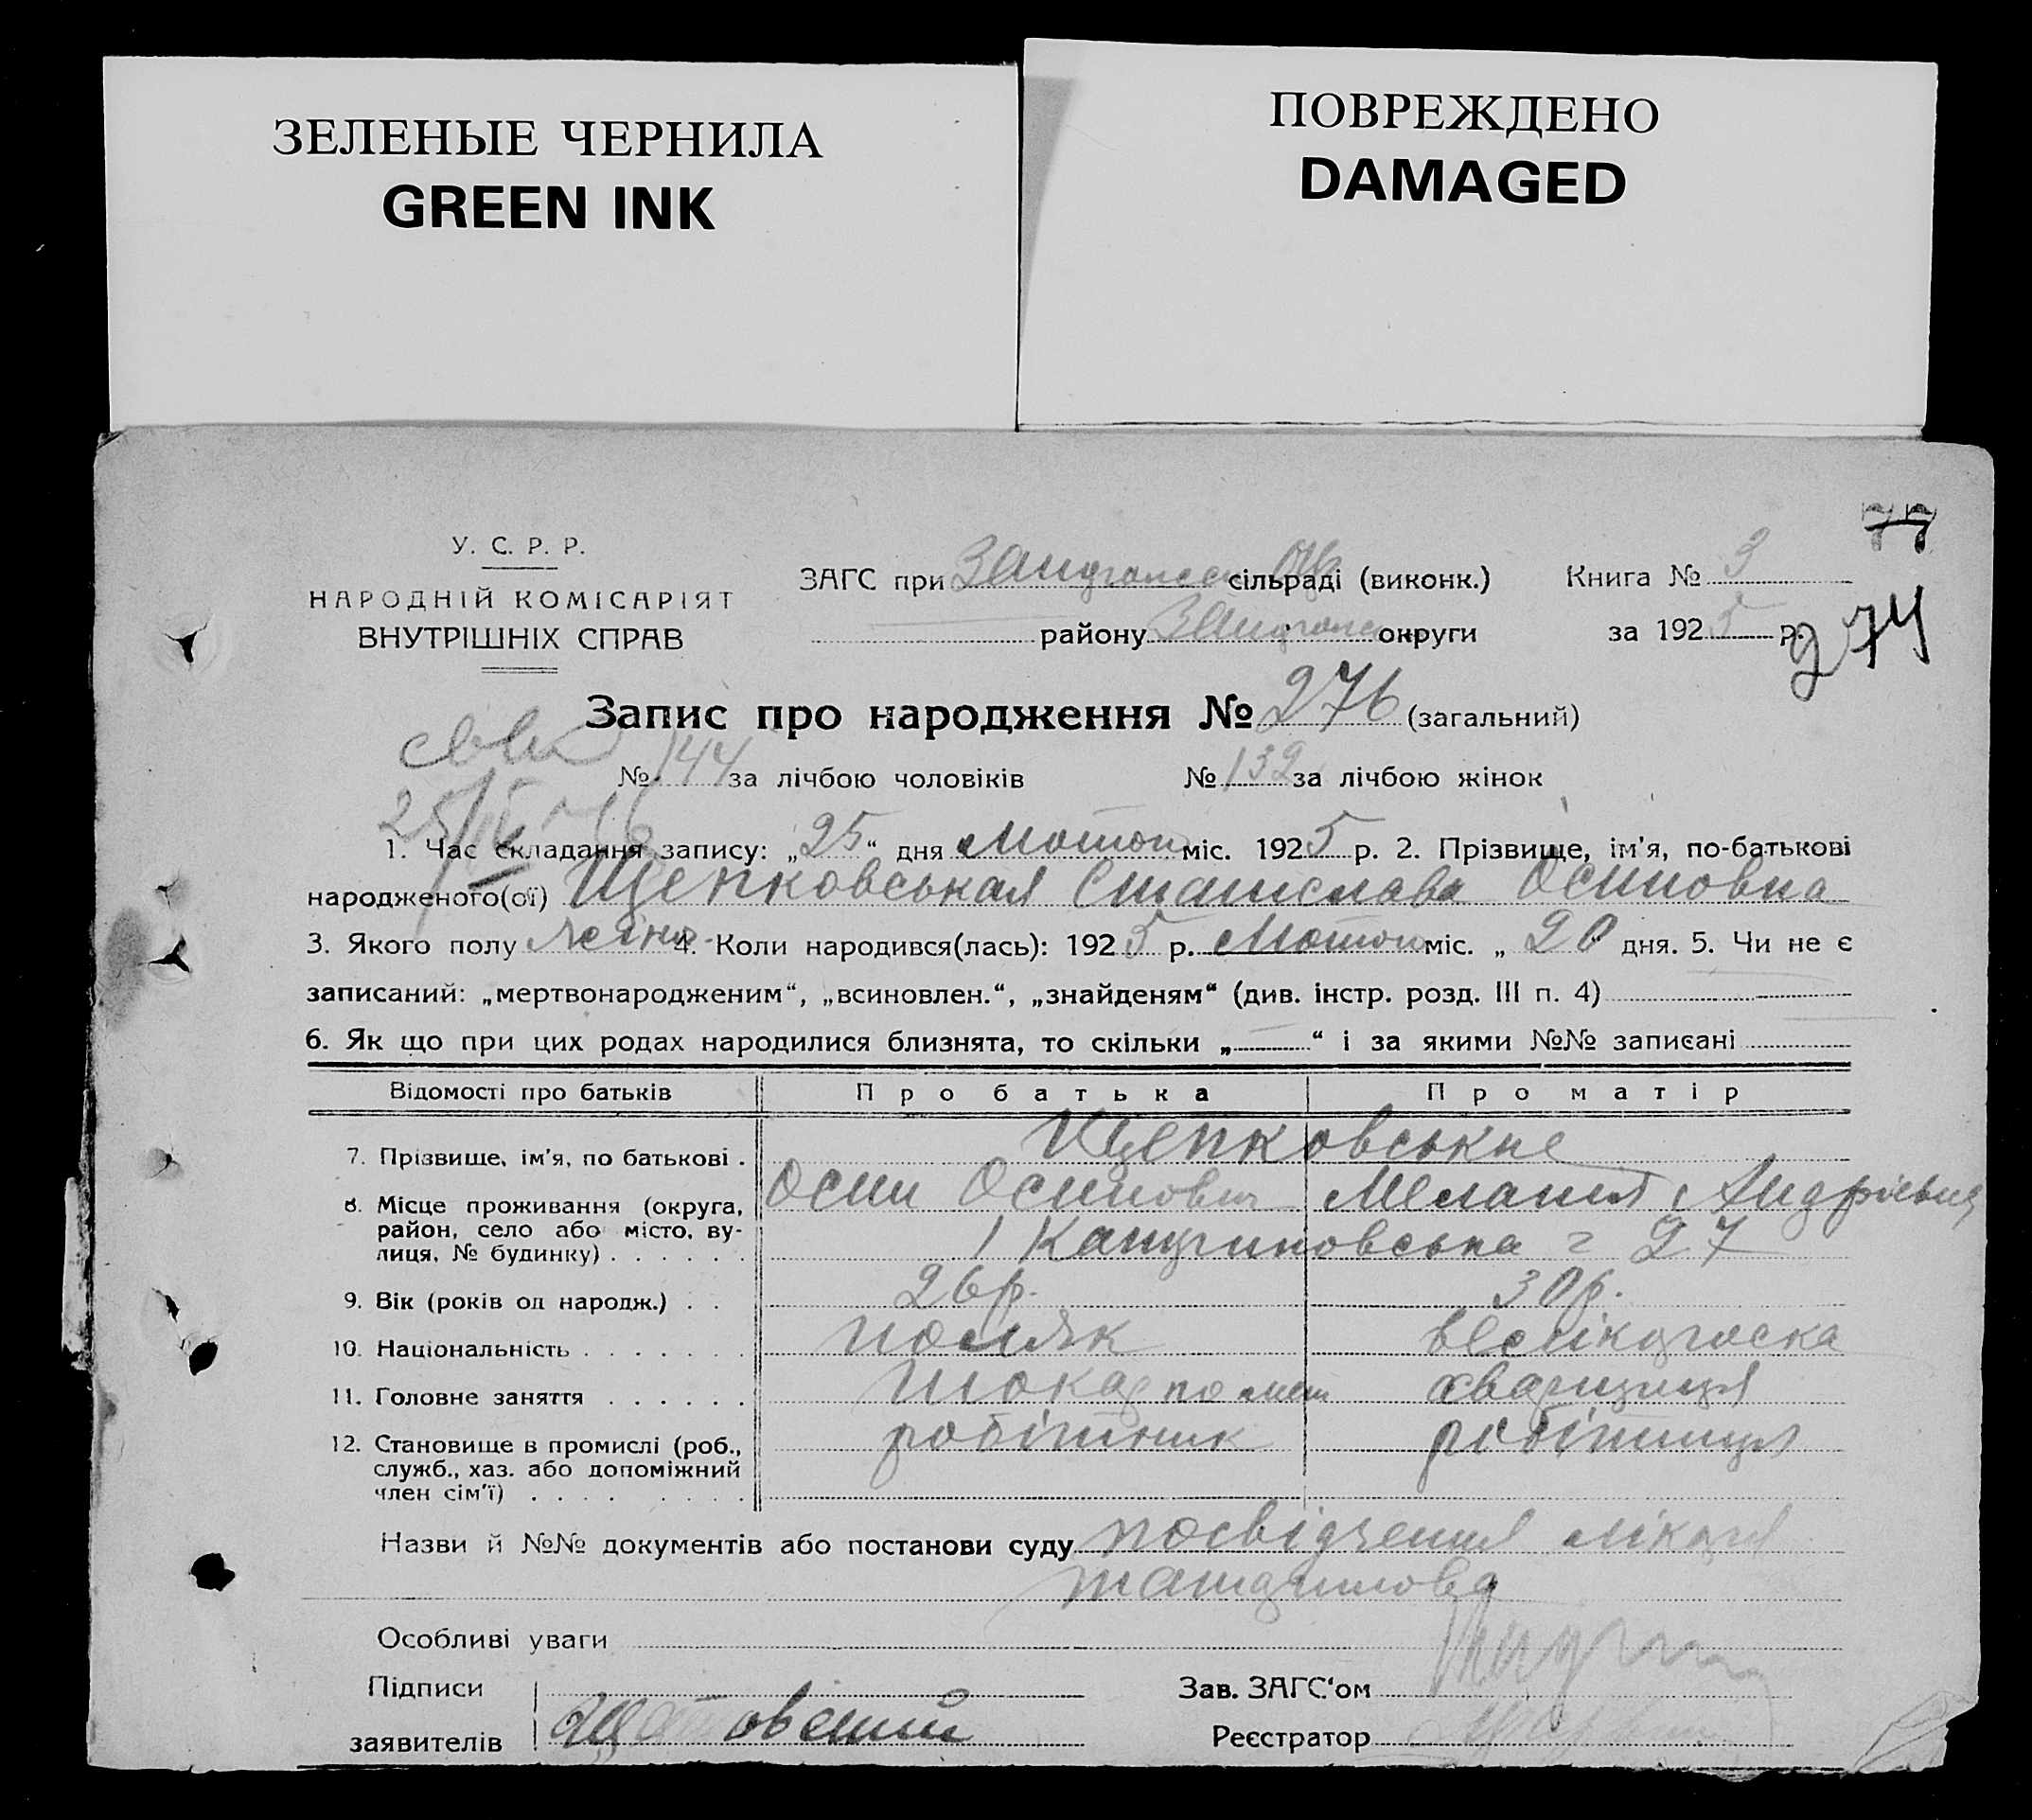 ЗЕЛЕНЫЕ ЧЕРНИЛА
GREEN INK
ПОВРЕЖДЕНО
DAMAGED
77
274
У. С. Р. Р.
НАРОДНІЙ КОМІСАРІЯТ
ВНУТРІШНІХ СПРАВ
ЗАГС при сільраді (виконк.) Книга № 3
району округи за 1925 р.
Запис про народження № 276 (загальний)
№ 144 за лічбою чоловіків № 132 за лічбою жінок
1. Час складання запису: „25“ дня Лютого міс. 1925 р. 2. Прізвище, ім'я, по-батькові
народженого(ої) Щепковськая Станислава Осиповна
3. Якого полу жіно. 4. Коли народився(лась): 1925 р. Лютого міс. „20“ дня. 5. Чи не є
записаний: „мертвонародженим“, „всиновлен.“, „знайденям“ (див. інстр. розд. III п. 4)
6. Як що при цих родах народилися близнята, то скільки „ “ і за якими №№ записані
Відомості про батьків Про батька Про матір
7. Прізвище, ім'я, по батькові . Щепковськие
Осип Осипович Мелания Андріевна
8. Місце проживання (округа, район, село або місто, вулиця, № будинку) . . . . . . 27
9. Вік (років од народж.) . . 26 р. 30 р.
10. Національність . . . . . . . поляк великороска
11. Головне заняття . . . . . . токар по мет
12. Становище в промислі (роб., служб., хаз. або допоміжний член сім'ї) . . . . . . . . робітник робітниця
Назви й №№ документів або постанови суду посвідчення лікаря
Особливі уваги
Підписи Зав. ЗАГС'ом
заявителів Реєстратор